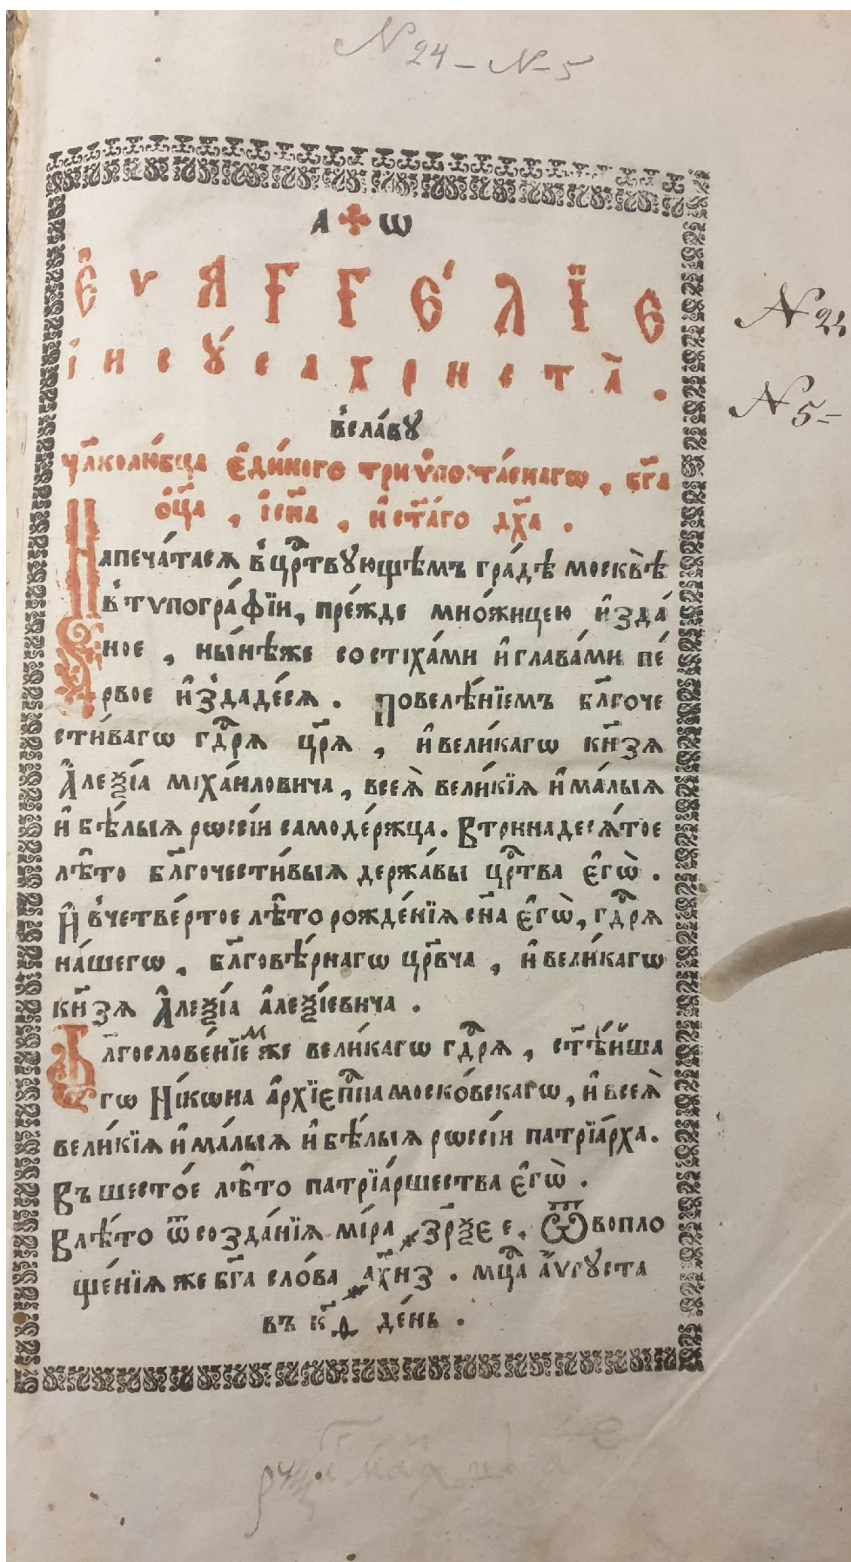 N 24 – N 5
А ✢ Ѡ
Є҆ѵѧ҆гге́лїе
і҆исꙋ́са христа̀.
в҆сла́вꙋ
чл҃колю́бца є҆ди́ного триѵ҆поста́снагѡ, бг҃а
ѻ҆ц҃а, і҆сн҃а, и҆ст҃а́го дх҃а.
Напеча́тасѧ в҆црⷭ҇твꙋющѣмъ гра́дѣ москвѣ̀
в҆ тѵпогра́фїи, пре́жде мно́жицею и҆зда́
ное, ны́нѣже состїха́ми и҆глава́ми пе́
рвое и҆з̾даде́сѧ. Повелѣ́нїемъ бл҃гоче
сти́вагѡ гдⷭ҇рѧ цр҃ѧ, и҆вели́кагѡ кн҃зѧ
А҆леѯі́а міха́иловича, всеѧ̀ вели́кїѧ и҆ма́лыѧ
и҆ бѣ́лыѧ рѡссі́и самоде́ржца. Втринадесѧ́тое
лѣ́то бл҃гочести́выѧ держа́вы црⷭ҇тва є҆гѡ̀.
И҆ вчетве́ртое лѣ́то рожде́нїѧ сн҃а є҆гѡ̀, гдⷭ҇рѧ
на́шегѡ, бл҃говѣ́рнагѡ цр҃вча, и҆вели́кагѡ
кн҃зѧ А҆леѯі́а а҆леѯі́евича.
Бл҃гослове́нїеⷨ же вели́кагѡ гдⷭ҇рѧ, ст҃ѣ́йша
гѡ Ні́кѡна а҆рхїепⷭ҇па моско́вскагѡ, и҆ всеѧ̀
вели́кїѧ и҆ма́лыѧ и҆ бѣ́лыѧ рѡссі́и патрїа́рха.
Въ шесто́е лѣ́то патрїа́ршества є҆гѡ̀.
Влѣ́то ѿ созда́нїѧ мі́ра ҂зр҃ѯ є҃. Ѿ вопло
ще́нїѧ же бг҃а сло́ва ҂ах҃нз. мцⷭ҇а а҆́ѵгꙋста
въ к҃д де́нь.
N 24
N 5 –